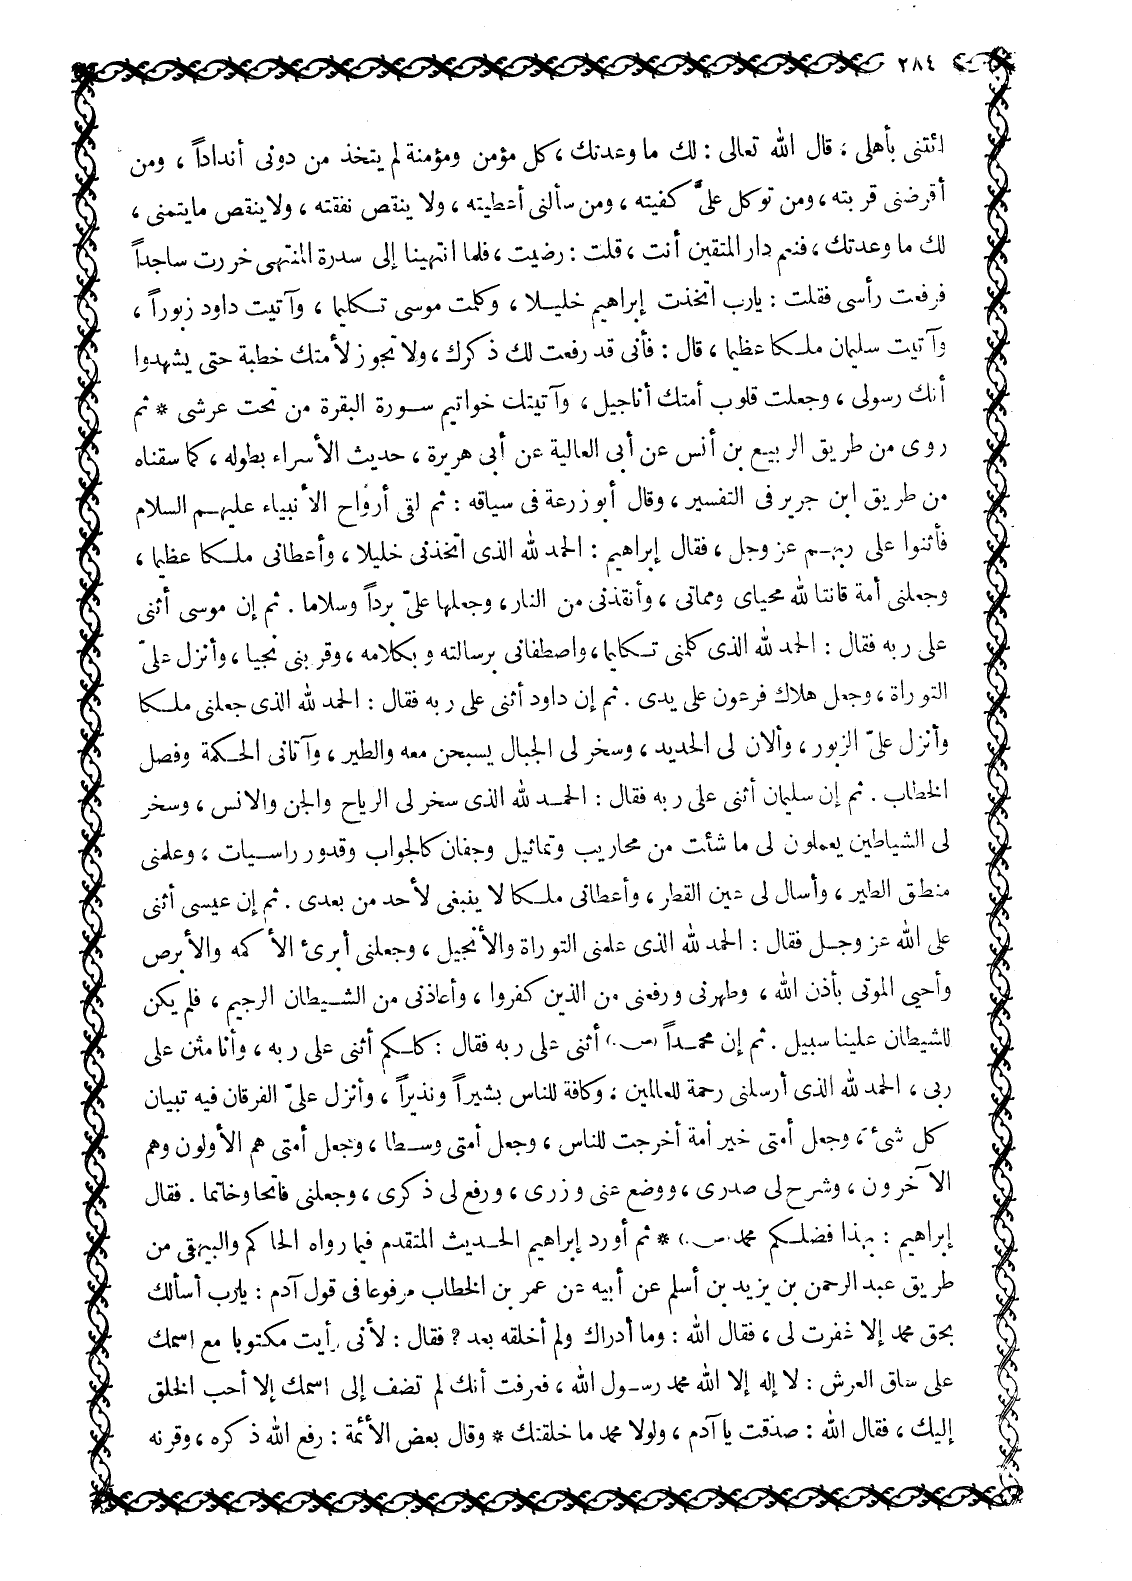 ٢٨٤
ائتنى بأهلى ، قال الله تعالى : لك ما وعدتك ، كل مؤمن ومؤمنة لم يتخذ من دونى أنداداً ، ومن
أقرضنى قربته ، ومن توكل علىَّ كفيته ، ومن سألنى أعطيته ، ولا ينقص نفقته ، ولا ينقص ما يتمنى ،
لك ما وعدتك ، فنعم دار المتقين أنت ، قلت : رضيت ، فلما انتهينا إلى سدرة المنتهى خررت ساجداً
فرفعت رأسى فقلت : يارب اتخذت إبراهيم خليلا ، وكلمت موسى تكليما ، وآتيت داود زبوراً ،
وآتيت سليمان ملكا عظيما ، قال : فأنى قد رفعت لك ذكرك ، ولا تجوز لأمتك خطبة حتى يشهدوا
أنك رسولى ، وجعلت قلوب أمتك أناجيل ، وآتيتك خواتيم سورة البقرة من تحت عرشى * ثم
روى من طريق الربيع بن أنس عن أبى العالية عن أبى هريرة ، حديث الأسراء بطوله ، كما سقناه
من طريق ابن جرير فى التفسير ، وقال أبو زرعة فى سياقه : ثم لقى أرواح الأنبياء عليهم السلام
فأثنوا على ربهم عز وجل ، فقال إبراهيم : الحمد لله الذى اتخذنى خليلا ، وأعطانى ملكا عظيما ،
وجعلنى أمة قانتا لله محياى ومماتى ، وأنقذنى من النار ، وجعلها علىّ برداً وسلاما . ثم إن موسى أثنى
على ربه فقال : الحمد لله الذى كلمنى تكليما ، واصطفانى برسالته وبكلامه ، وقربنى نجيا ، وأنزل علىّ
التوراة ، وجعل هلاك فرعون على يدى . ثم إن داود أثنى على ربه فقال : الحمد لله الذى جعلنى ملكا
وأنزل علىّ الزبور ، وألان لى الحديد ، وسخر لى الجبال يسبحن معه والطير ، وآتانى الحكمة وفصل
الخطاب . ثم إن سليمان أثنى على ربه فقال : الحمد لله الذى سخر لى الرياح والجن والانس ، وسخر
لى الشياطين يعملون لى ما شئت من محاريب وتماثيل وجفان كالجواب وقدور راسيات ، وعلمنى
منطق الطير ، وأسال لى عين القطر ، وأعطانى ملكا لا ينبغى لأحد من بعدى . ثم إن عيسى أثنى
على الله عز وجل فقال : الحمد لله الذى علمنى التوراة والأنجيل ، وجعلنى أبرئ الأكمه والأبرص
وأحيى الموتى بأذن الله ، وطهرنى ورفعنى من الذين كفروا ، وأعاذنى من الشيطان الرجيم ، فلم يكن
للشيطان علينا سبيل . ثم إن محمداً (ص) أثنى على ربه فقال : كلكم أثنى على ربه ، وأنا مثن على
ربى ، الحمد لله الذى أرسلنى رحمة للعالمين ، وكافة للناس بشيراً ونذيراً ، وأنزل علىّ الفرقان فيه تبيان
كل شئ ، وجعل أمتى خير أمة أخرجت للناس ، وجعل أمتى وسطا ، وجعل أمتى هم الأولون وهم
الآخرون ، وشرح لى صدرى ، ووضع عنى وزرى ، ورفع لى ذكرى ، وجعلنى فاتحا وخاتما . فقال
إبراهيم : بهذا فضلكم محمد (ص) * ثم أورد إبراهيم الحديث المتقدم فيما رواه الحاكم والبيهقى من
طريق عبد الرحمن بن يزيد بن أسلم عن أبيه عن عمر بن الخطاب مرفوعا فى قول آدم : يارب أسألك
بحق محمد إلا غفرت لى ، فقال الله : وما أدراك ولم أخلقه بعد ? فقال : لأنى رأيت مكتوبا مع اسمك
على ساق العرش : لا إله إلا الله محمد رسول الله ، فعرفت أنك لم تضف إلى اسمك إلا أحب الخلق
إليك ، فقال الله : صدقت يا آدم ، ولولا محمد ما خلقتك * وقال بعض الأئمة : رفع الله ذكره ، وقرنه